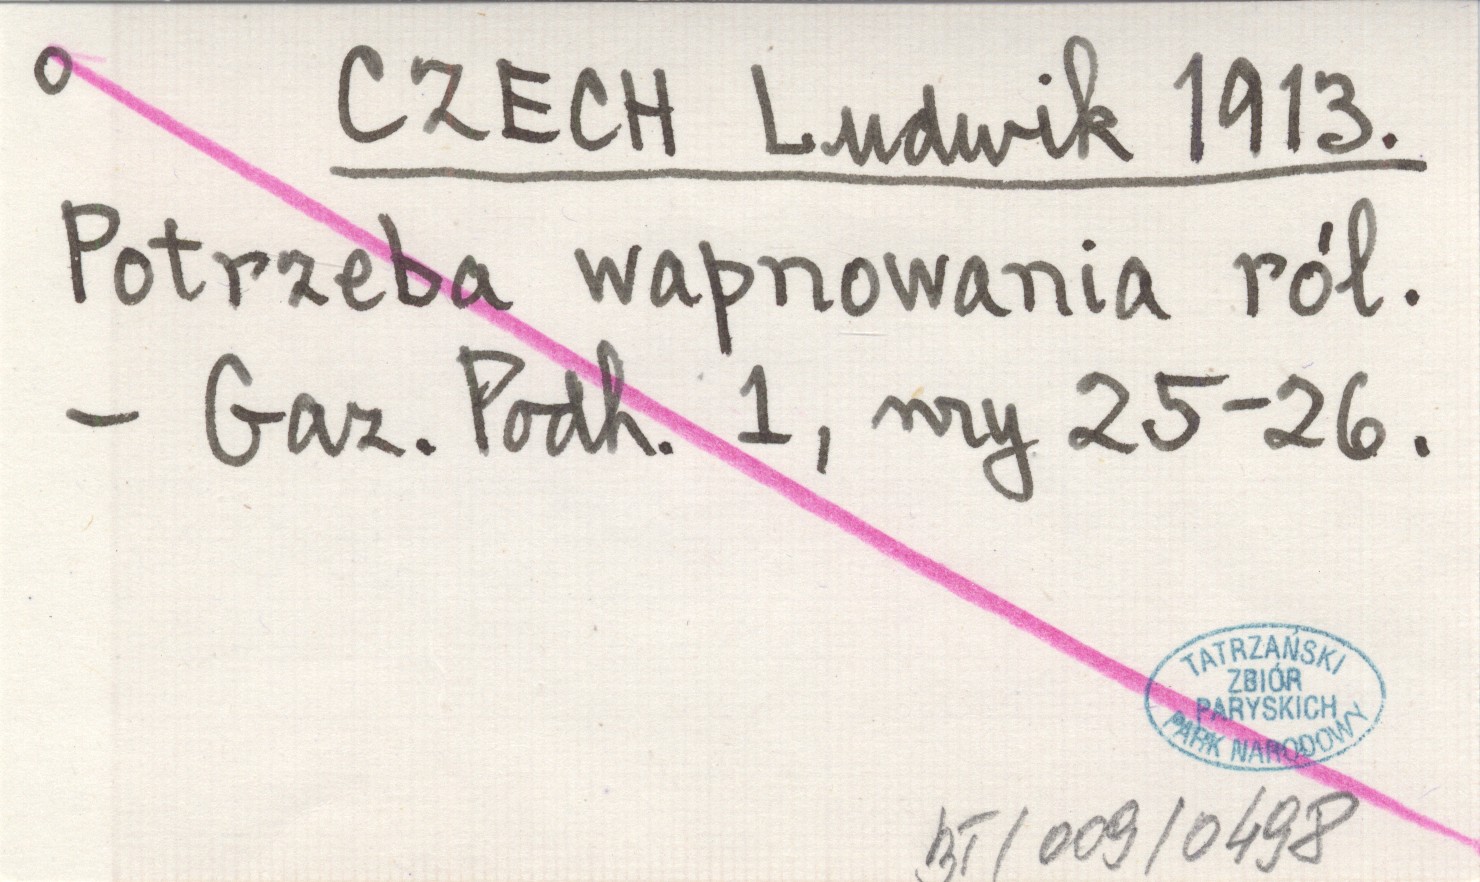 o CZECH Ludwik 1913.
Potrzeba wapnowania ról.
- Gaz. Podh. 1, nry 25-26.
TATRZAŃSKI
ZBIÓR
PARYSKICH
PARK NARODOWY
BT/009/0498